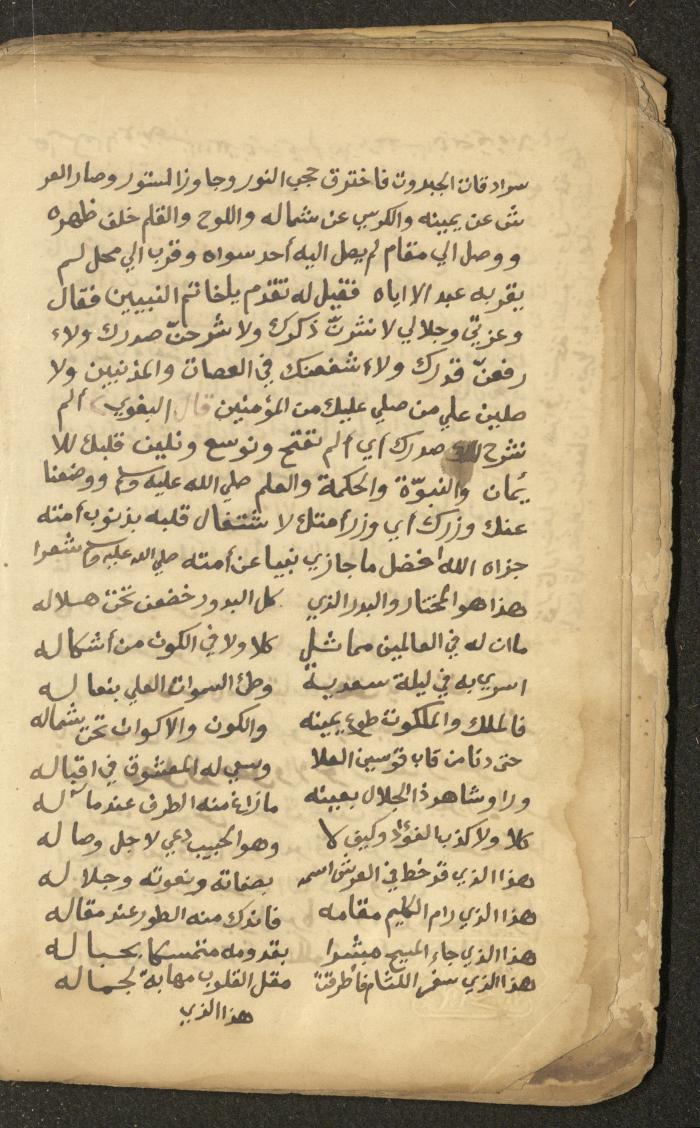 سرادقات الجبروت فاخترق حجب النور وجاوز الستور وصار العر
ش عن يمينه والكرسي عن شماله واللوح والقلم خلف ظهره
ووصل الي مقام لم يصل اليه أحد سواه وقرب الي محل لم
يقربه عبد الا اياه فقيل له تقدم ياخاتم النبيين فقال
وعزتي وجلالي لا نشرتّ ذكرك ولا شرحنّ صدرك ولاء
رفعنّ قدرك ولاء شفعنك في العصات والمذنبين ولا
صلين علي من صلي عليك من المؤمنين قال البغوي ألم
نشرح لك صدرك أي ألم نفتح ونوسع ونلين قلبك للا
يمان والنبوّة والحكمة والعلم صلي الله عليه وسلم ووضعنا
عنك وزرك أي وزر أمتك لا شتغال قلبه بذنوب أمته
جزاه الله أفضل ما جازي نبيا عن أمته صلي الله عليه وسلم شعرا
هذا هو المختار والبدر الذي كل البدور خضعن تحت هلاله
ماان له في العالمين مماثل كلا ولا في الكون من أشكاله
اسري به في ليلة سعدية وطئ السموات العلي بنعاله
فالملك والملكوت طوع يمينه والكون والاكوان تحت شماله
حتي دنا من قاب قوسين العلا وسي له المعشوق في اقباله
وراو شاهد ذا الجلال بعينه مازاغ منه الطرف عند ماله
كلا ولا كذب الفؤاد وكيف لا وهو الحبيب دعي لاجل وصاله
هذا الذي قد خط في العرش اسمه بصفاته ونعوته وجلاله
هذا الذي رام الكليم مقامه فاندك منه الطور عند مقاله
هذا الذي جاء المسيح مبشرا بقدومه متمسكا بحباله
هذا الذي سفر اللثام فأطرقت مقل القلوب مهابة لجماله
هذا الذي